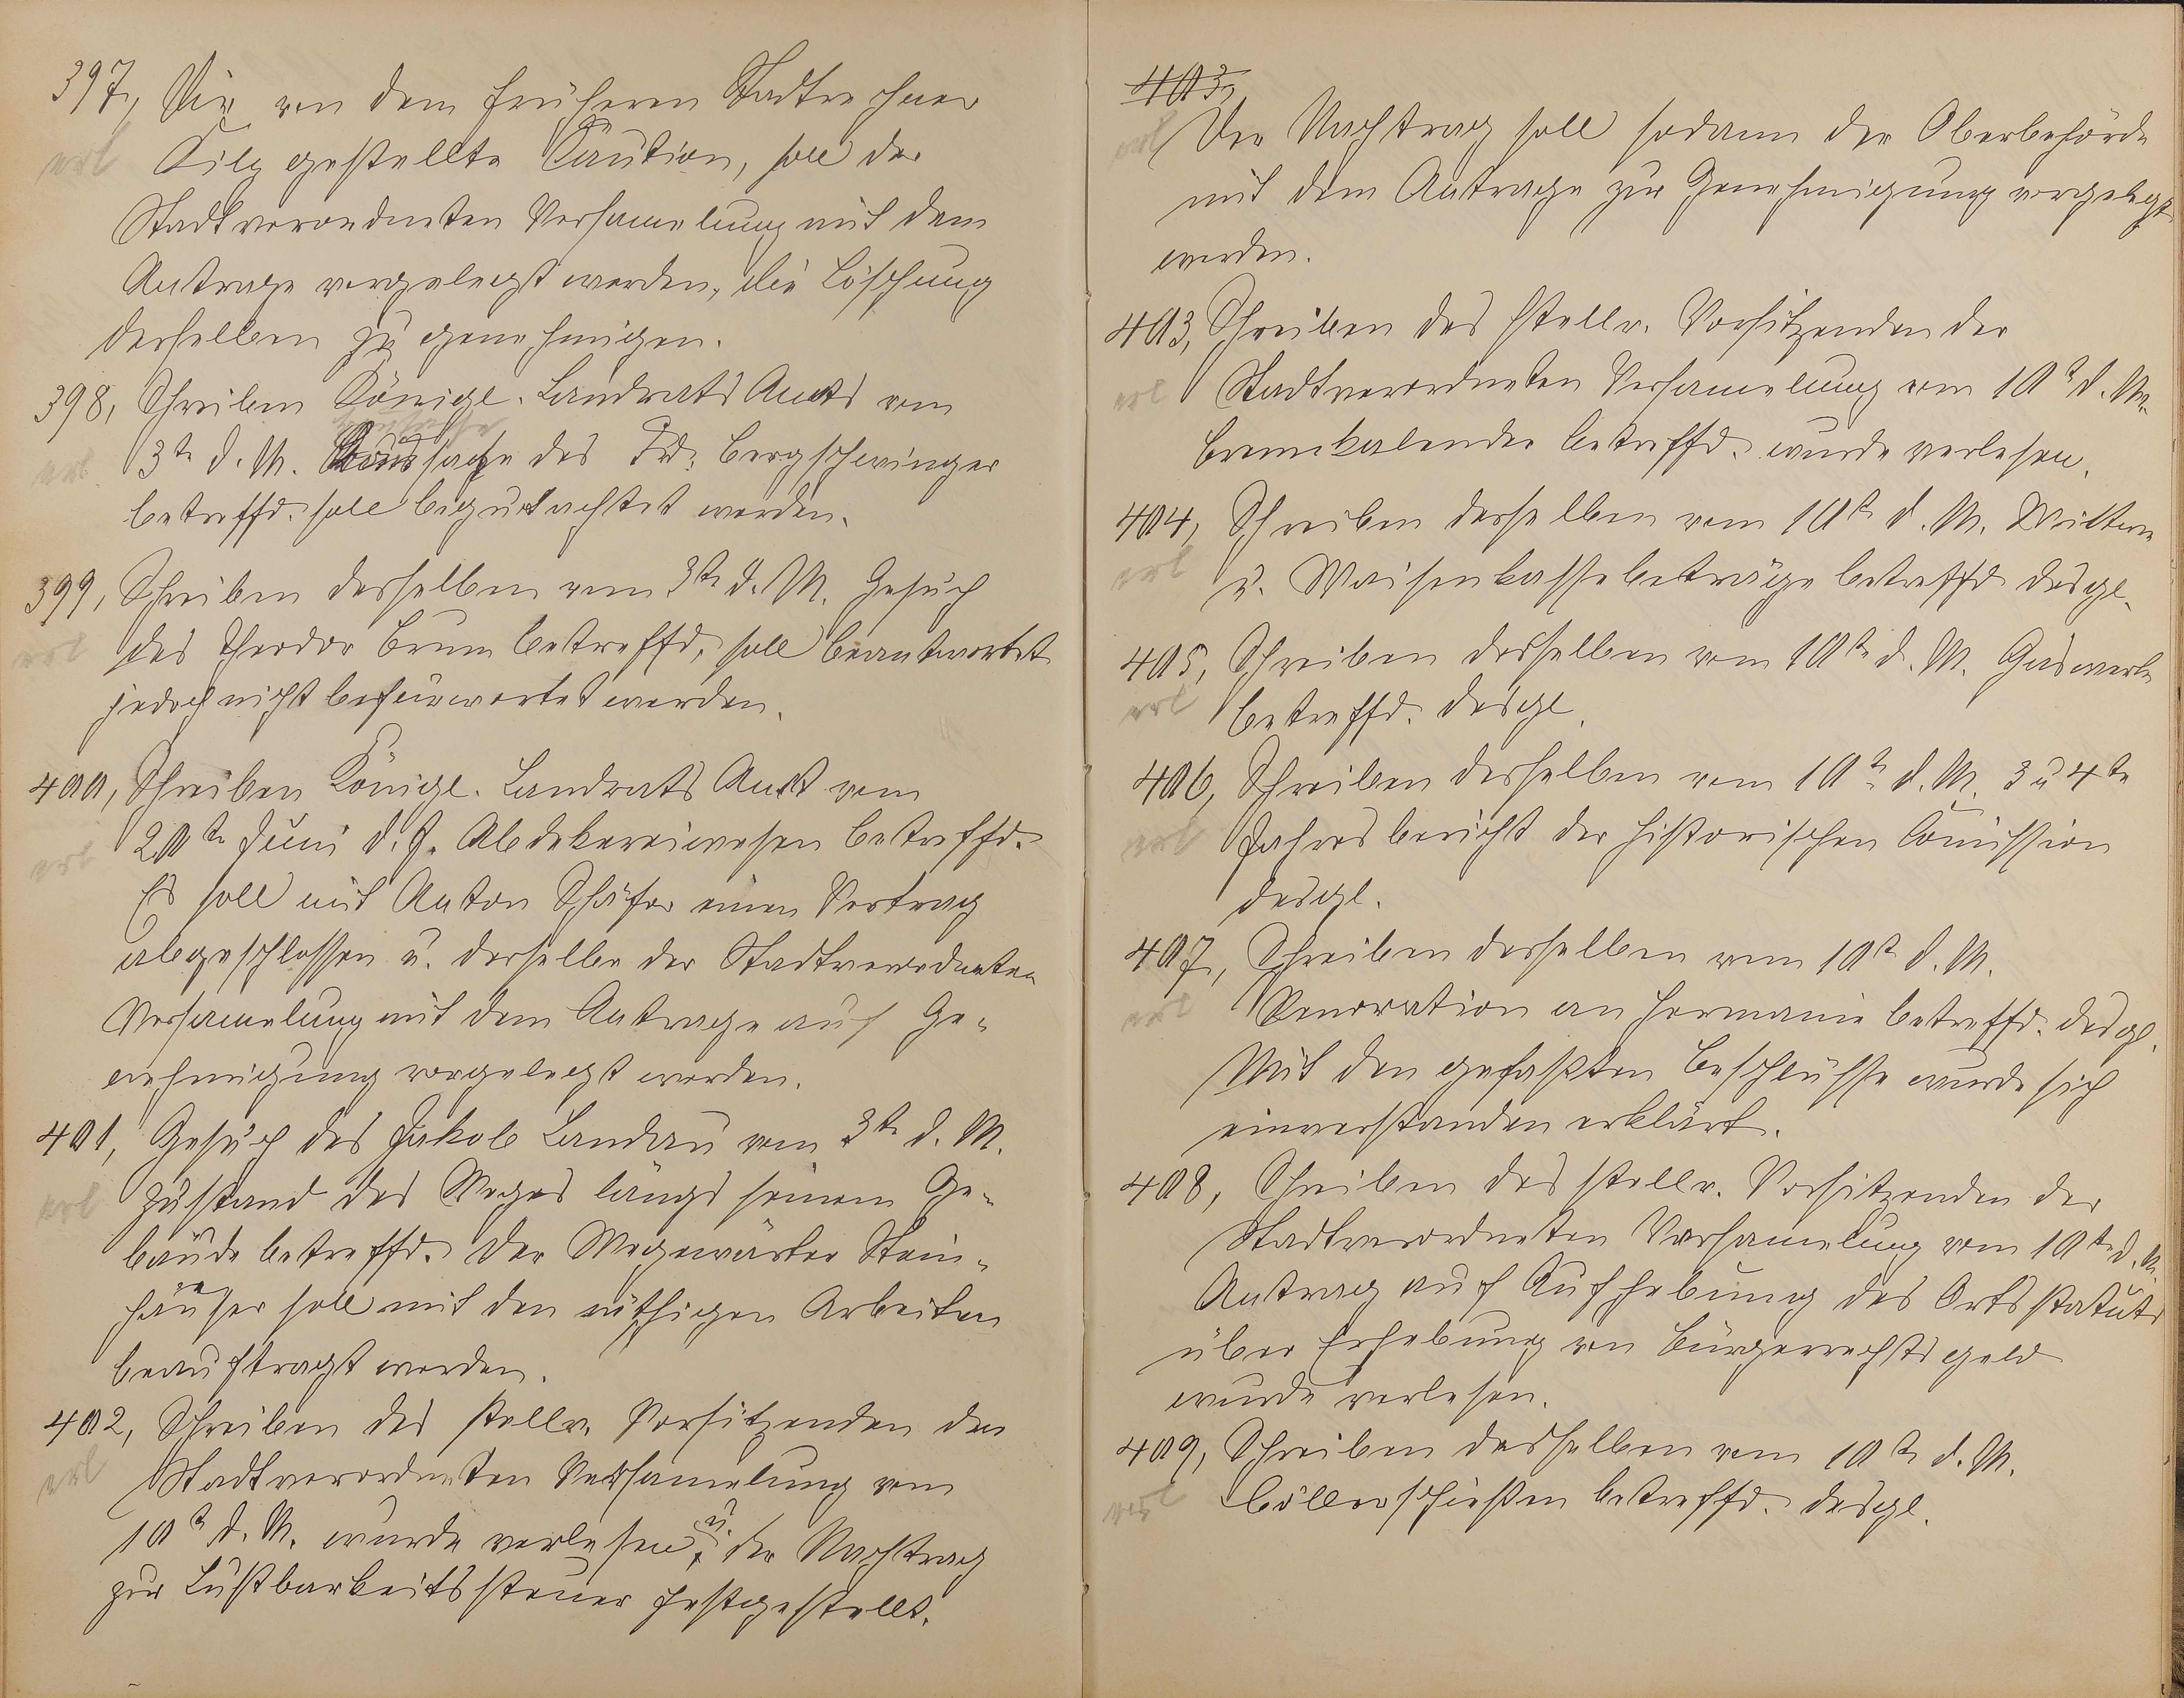 397, Die von dem früheren Stadtrechner
erl Kilz gestellte Caution, soll der
Stadtverordneten Versamelung mit dem
Antrage vorgelegt werden, die Löschung
derselben zu genehmigen.
398, Schreiben Königl. Landrats Amts vom
erl 3te d. M. sache des Frd. Bergschwinger
betreffd. soll begutachtet werden.
399, Schreiben desselben vom 3te d. M. Gesuch
erl des Theodor Brum betreffd. soll beantwortet
jedoch nicht befürwortet werden.
400, Schreiben Königl. Landrats Amt vom
erl 20te Juni d. J. Abdekereiwesen betreffd.
Es soll mit Anton Schäfer einen Vertrag
abgeschlossen u. derselbe der Stadtverordneten
Versamelung mit dem Antrage auf Ge-
nehmigung vorgelegt werden.
401, Gesuch des Jakob Landau vom 3te d. M.
erl Zustand des Weges längs seinem Ge-
bäude betreffd. Der Wegewärter Stein-
häuser soll mit den nöthigen Arbeiten
beauftragt werden.
402, Schreiben des stellv. Vorsitzenden der
erl Stadtverordneten Versamelung vom
10te d. M. wurde verlesen u. der Nachtrag
zur Lustbarkeitssteuer festgestellt.
403,
erl Der Nachtrag soll sodann der Oberbehörde
mit dem Antrage zur Genehmigung vorgelegt
werden.
403, Schreiben des stellv. Vorsitzenden der
erl Stadtverordneten Versamelung vom 10te d. M.
Bremkalender betreffd. wurde verlesen.
404, Schreiben desselben vom 10te d. M. Wittwen
erl u. Waisenkassebeträge betreffd desgl.
405, Schreiben desselben vom 10te d. M. Gaswerk
erl betreffd. desgl.
406, Schreiben desselben vom 10te d. M. 3 u 4te
erl Jahresbericht der historischen Comission
desgl.
407, Schreiben desselben vom 10te d. M.
erl Renovation an Hermanie betreffd. desgl.
Mit den gefaßten Beschlüsse wurde sich
einverstanden erklärt.
408, Schreiben des stellv. Vorsitzenden der
Stadtverordneten Versamelung vom 10te d. M.
Antrag auf Aufhebung des Ortsstatuts
über Erhebung von Bürgerrechtsgeld
wurde verlesen.
409, Schreiben desselben vom 10te d. M.
erl Böllerschießen betreffd. desgl.